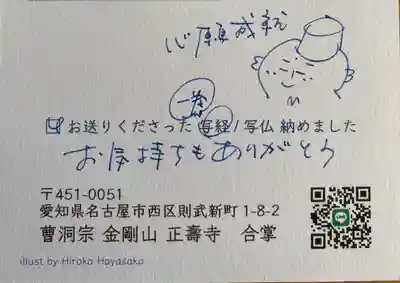 心願成就
一巻
お送りくださった 写経 / 写仏 納めました
お気持ちもありがとう
〒451-0051
愛知県名古屋市西区則武新町 1-8-2
曹洞宗 金剛山 正壽寺 合掌
illust by Hiroka Hayasaka